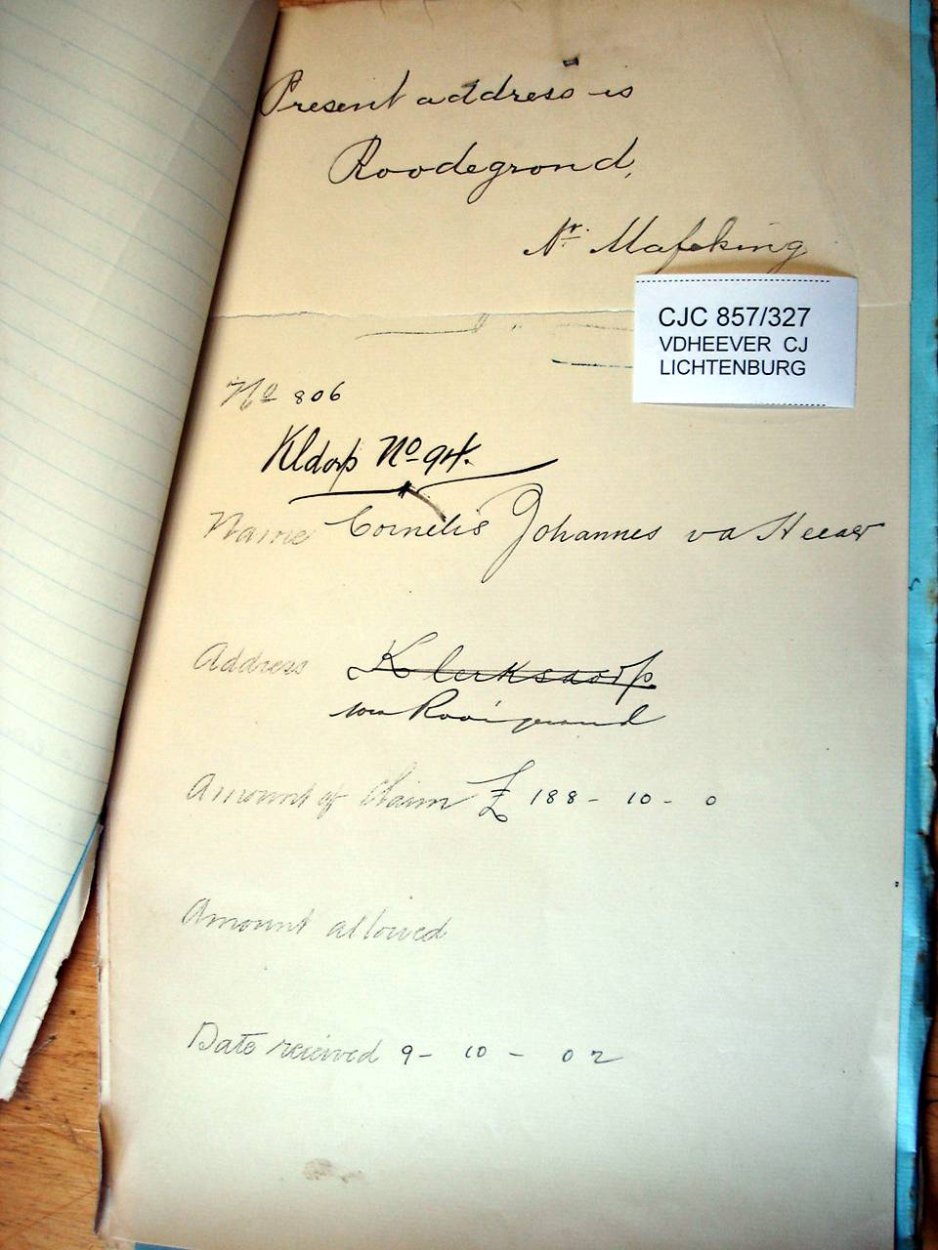 Present address is
Roodegrond,
Nr. Mafeking
CJC 857/327
VDHEEVER CJ
LICHTENBURG
No 806
Kldorp No 94.
Name Cornelis Johannes vd Heever
Address Klerksdorp
Rooigrond
Amount of Claim £ 188 - 10 - 0
Amount allowed
Date recieved 9 - 10 - 02